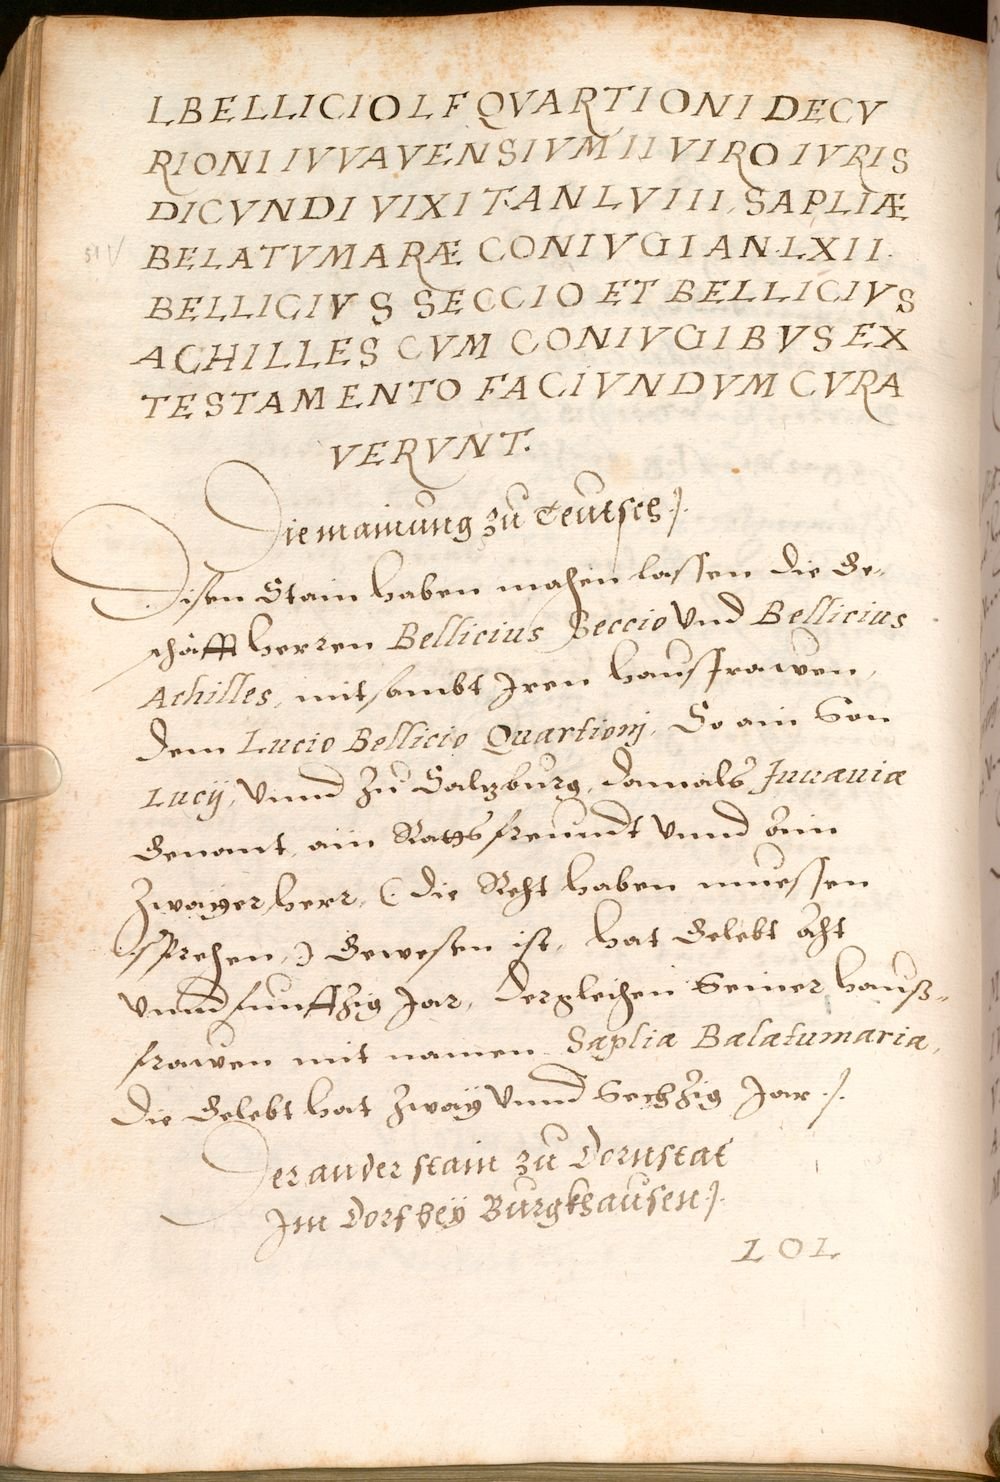 L BELLICIO L F QVARTIONI DECV
RIONI IVVAVENSIVM II VIRO IVRIS
DICVNDI VIXIT. AN LVIII. SAPLIÆ
BELATVMARÆ CONIVGI AN. LXII.
BELLICIVS SECCIO ET BELLICIVS
ACHILLES CVM CONIVGIBVS EX
TESTAMENTO FACIVNDVM CVRA
VERVNT.
Die mainung zu Teutsch ./.
Disen Stain haben machen lassen die Ge-
schäfft herren Bellicius Seccio Vnd Bellicius
Achilles, mitsambt Iren hausfrawen,
dem Lucio Bellicio Quartionj, So ain Son
Lucij, Vnnd zu Salzburg, damals Juuauiæ
Genant, ain Ratsfreundt Vnnd ain
Zwayerherr, (: die Recht haben muessen
sprechen,:) Gewesen ist, hat Gelebt acht
Vnnd funffzig Jar, dergleichen Seiner hauß-
frawen mit namen Saplia Balatumaria,
die Gelebt hat zway Vnnd Sechzig Jar ./.
Der ander stain zu Dornstat
Im Dorf bey Burgkhausen ./.
LOL